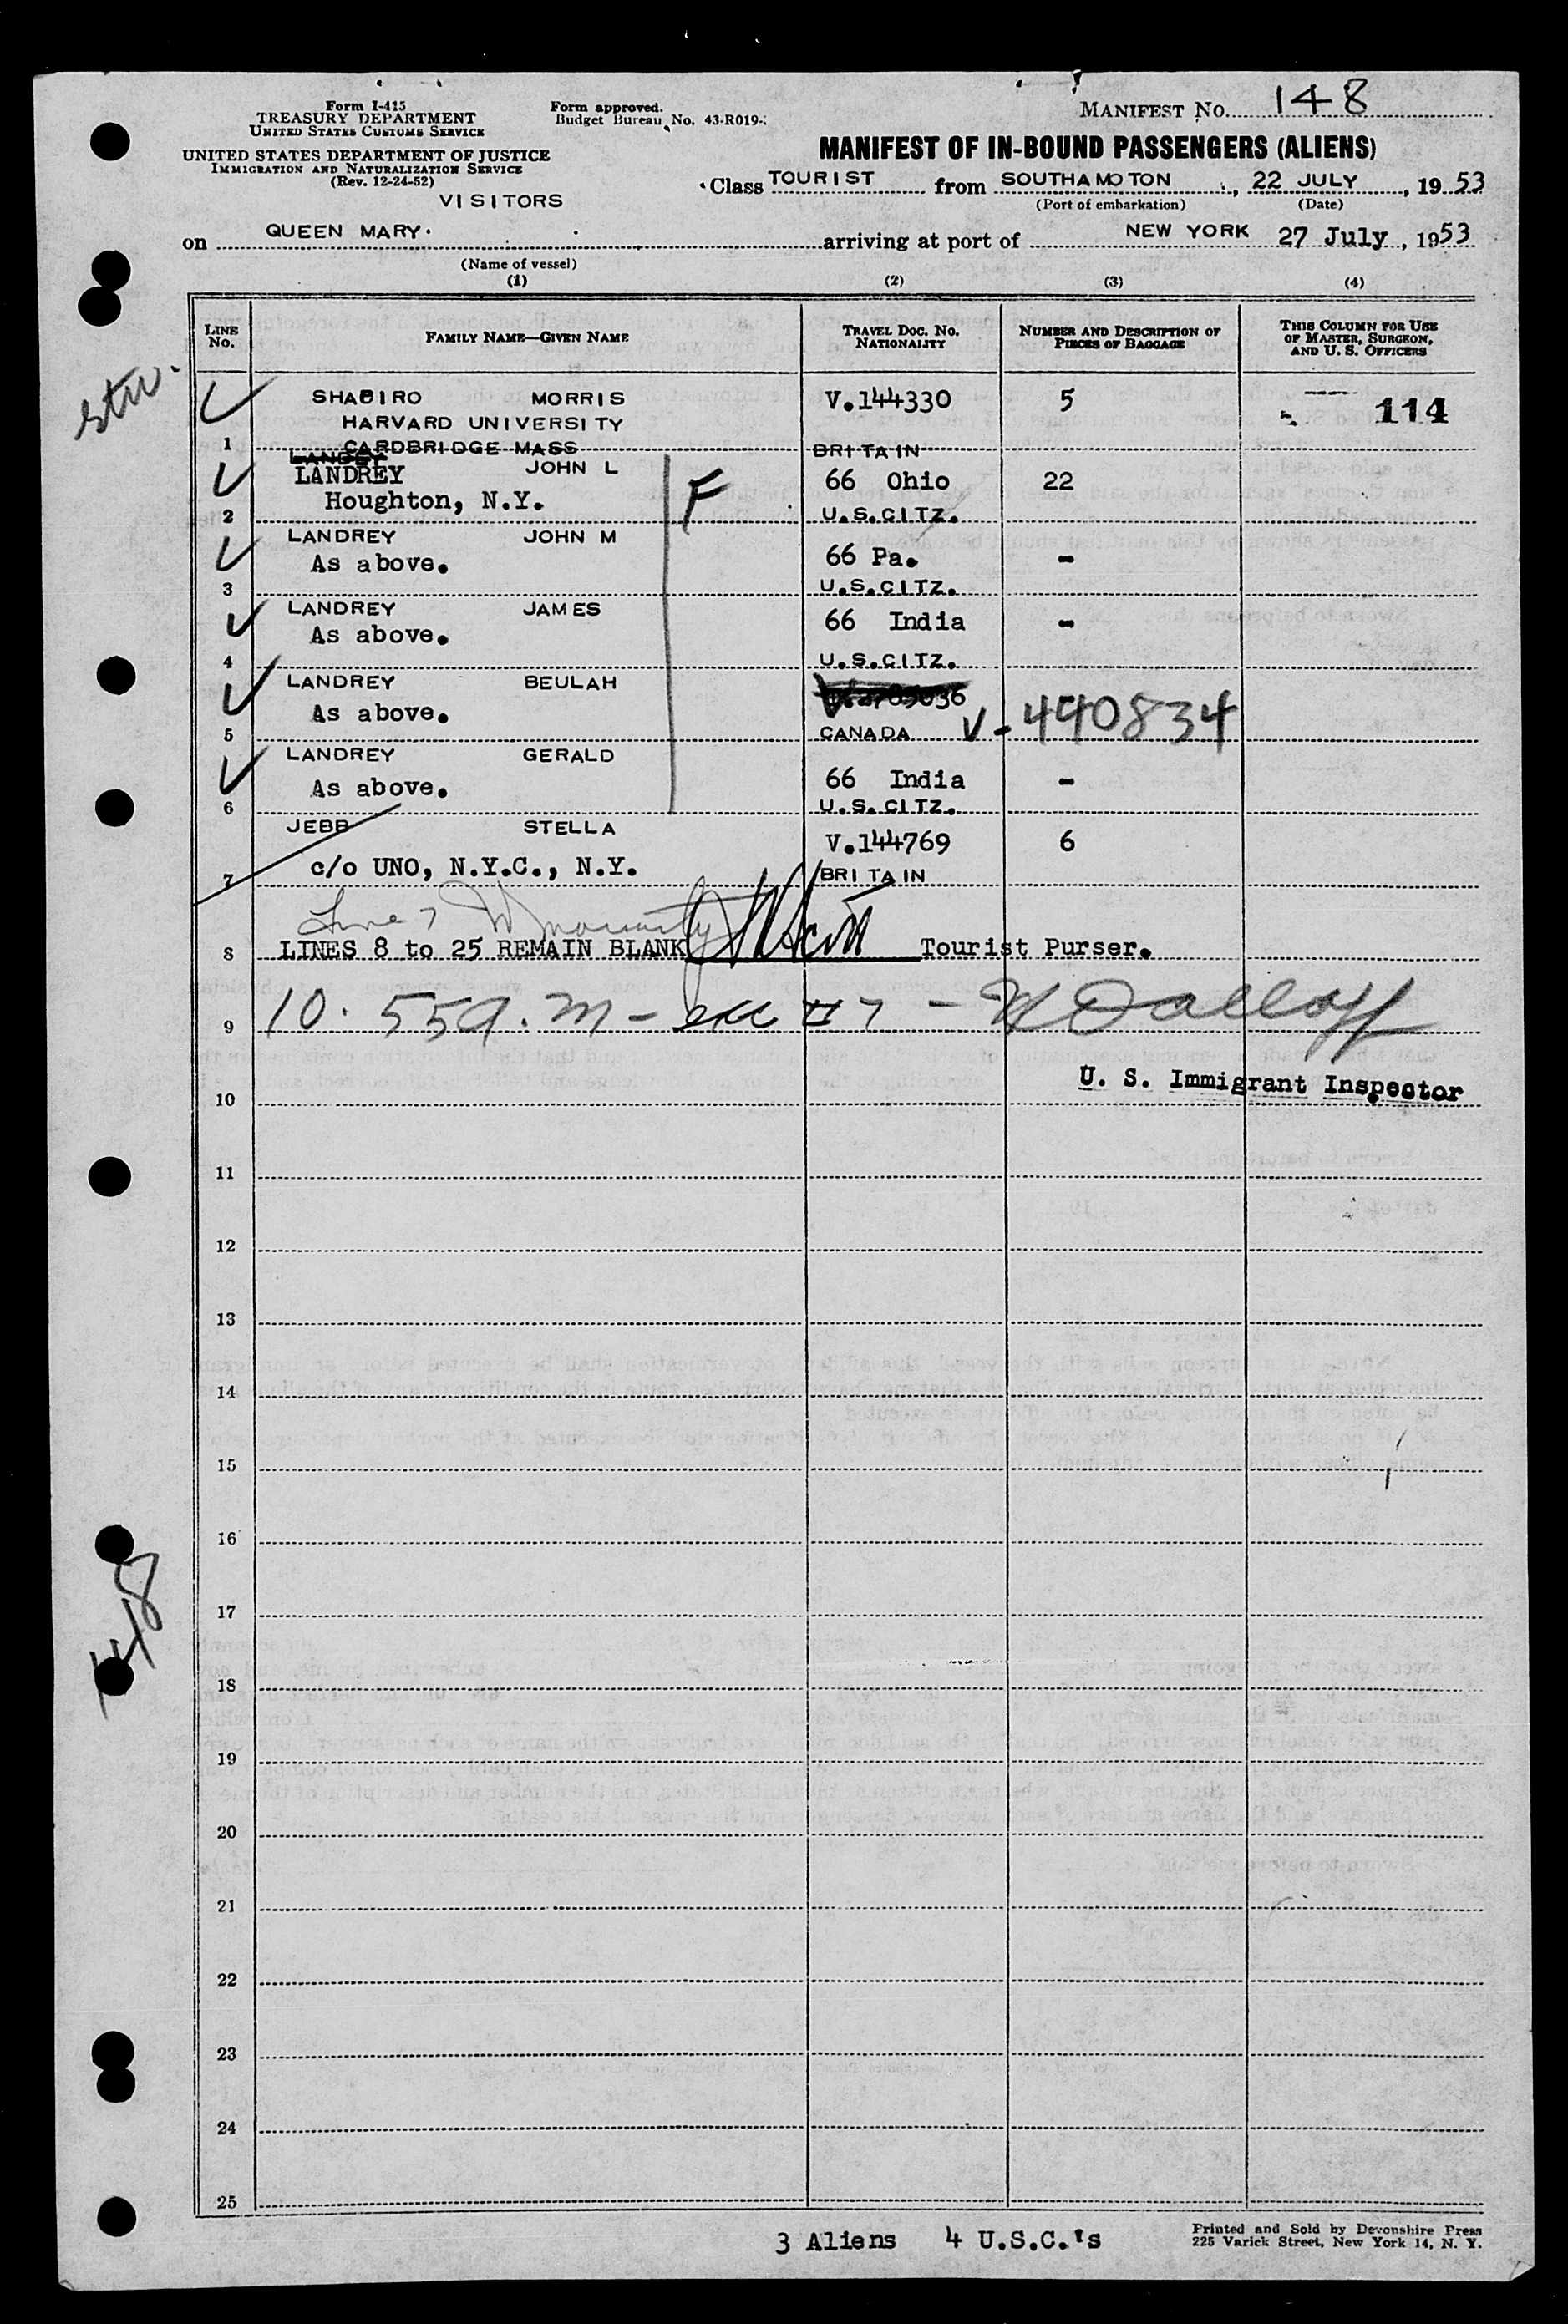 Form I-415
TREASURY DEPARTMENT
UNITED STATES CUSTOMS SERVICE
Form approved.
Budget Bureau No. 43-R019-
MANIFEST NO. 148
UNITED STATES DEPARTMENT OF JUSTICE
IMMIGRATION AND NATURALIZATION SERVICE
(Rev. 12-24-52)
VISITORS
MANIFEST OF IN-BOUND PASSENGERS (ALIENS)
Class TOURIST from SOUTHAMOTON, 22 JULY, 1953
(Port of embarkation) (Date)
on QUEEN MARY. arriving at port of NEW YORK 27 July, 1953
(Name of vessel)
(1) (2) (3) (4)
LINE No. FAMILY NAME—GIVEN NAME TRAVEL DOC. NO. NATIONALITY NUMBER AND DESCRIPTION OF PIECES OF BAGGAGE THIS COLUMN FOR USE OF MASTER, SURGEON, AND U. S. OFFICERS
stw.
SHABIRO MORRIS V.144330 5 114
HARVARD UNIVERSITY
1 CARDBRIDGE MASS BRITAIN
LANDREY JOHN L 66 Ohio 22
Houghton, N.Y. F
2 U.S.CITZ.
LANDREY JOHN M 66 Pa. -
As above.
3 U.S.CITZ.
LANDREY JAMES 66 India -
As above.
4 U.S.CITZ.
LANDREY BEULAH
As above.
5 CANADA V-440834
LANDREY GERALD
As above. 66 India -
6 U.S.CITZ.
JEBB STELLA V.144769 6
c/o UNO, N.Y.C., N.Y.
7 BRITAIN
Line 7
8 LINES 8 to 25 REMAIN BLANK Tourist Purser.
9 10.55a.m - #7 -
U. S. Immigrant Inspector
10
11
12
13
14
15
16
17
18
19
20
21
22
23
24
25
148
3 Aliens 4 U.S.C.'s
Printed and Sold by Devonshire Press
225 Varick Street, New York 14, N. Y.